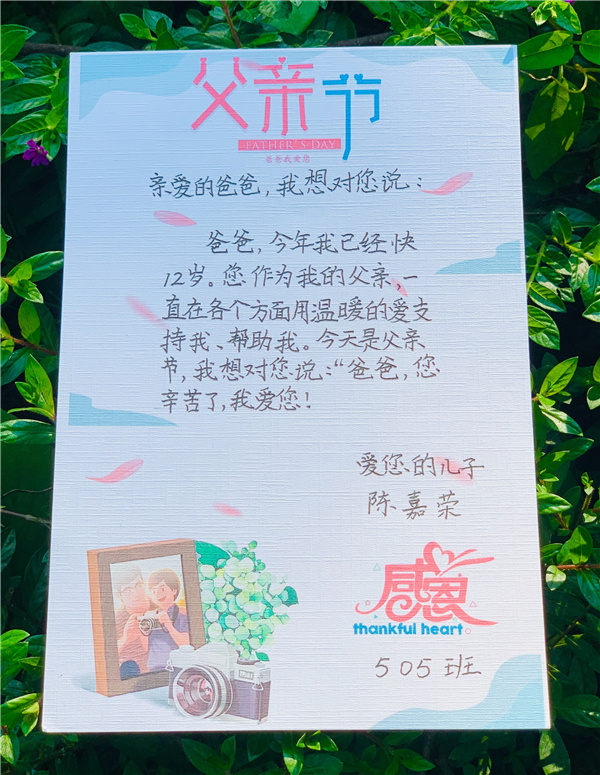 父亲节
FATHER'S DAY
爸爸我爱您
亲爱的爸爸，我想对您说：
爸爸，今年我已经快
12岁。您作为我的父亲，一
直在各个方面用温暖的爱支
持我、帮助我。今天是父亲
节，我想对您说：“爸爸，您
辛苦了，我爱您！
爱您的儿子
陈嘉荣
感恩
thankful heart
505班